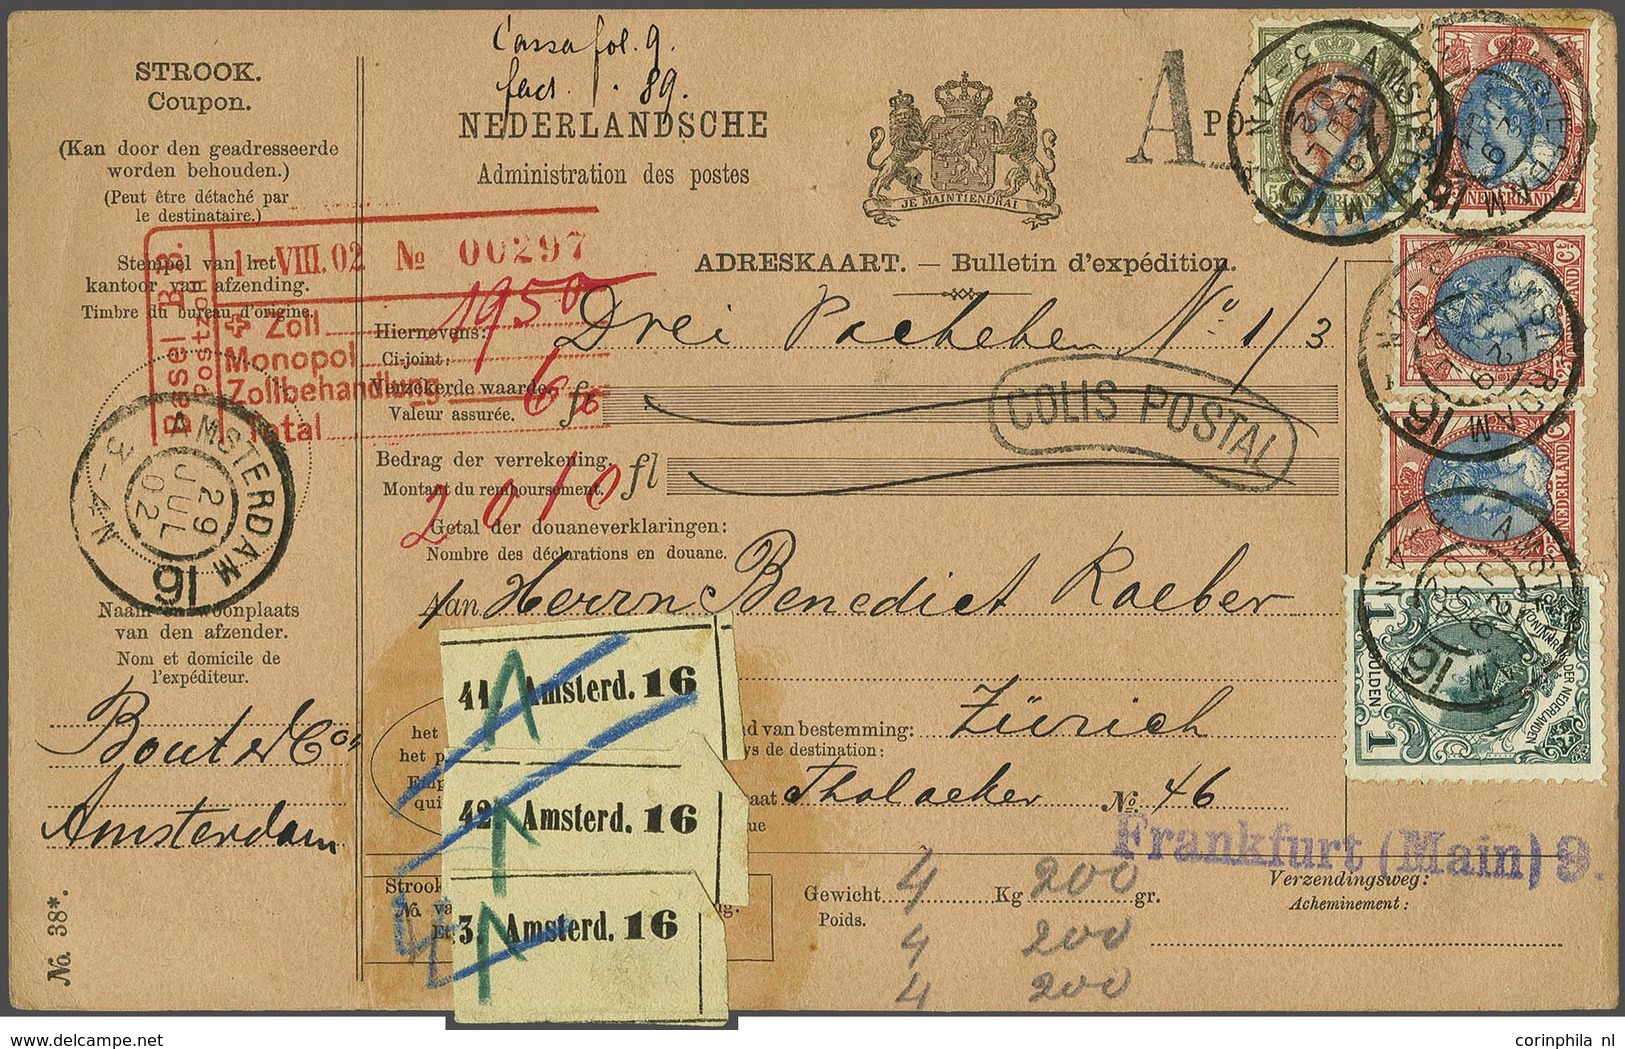 Cassa fol. 9.
fact. . 89.
STROOK.
Coupon.
(Kan door den geadresseerde
worden behouden.)
(Peut être détaché par
le destinataire.)
NEDERLANDSCHE
Administration des postes
JE MAINTIENDRAI
A
PO
Stempel van het
kantoor van afzending.
Timbre du bureau d'origine.
Basel B.B.
Postzoll
1-VIII.02 No 00297
Zoll
Monopol
Zollbehandlung
Total
1950
60
2010
ADRESKAART. — Bulletin d'expédition.
Hiernevens:
Ci-joint:
Drei Packchen No 1/3
Verzekerde waarde.
Valeur assurée.
COLIS POSTAL
Bedrag der verrekening.
Montant du remboursement.
fl
Getal der douaneverklaringen:
Nombre des déclarations en douane.
AMSTERDAM
3-4N
29
JUL
02
16
Naam en woonplaats
van den afzender.
Nom et domicile de
l'expéditeur.
Bout & Con
Amsterdam
Aan Herrn Benedict Raeber
41 Amsterd. 16
42 Amsterd. 16
3. Amsterd. 16
het
het p
qui
d van bestemming:
ys de destination:
Zürich
aat
ue
Tholacker No. 46
Frankfurt (Main) 9.
Strook
No. va
Gewicht 4 Kg 200 gr.
Poids.
4 200
4 200
Verzendingsweg:
Acheminement:
No. 38*.
AMSTERDAM
16
NEDERLAND
NEDERLAND
NEDERLAND
1 GULDEN 1
KONINKRIJK DER NEDERLANDEN
corinphila nl